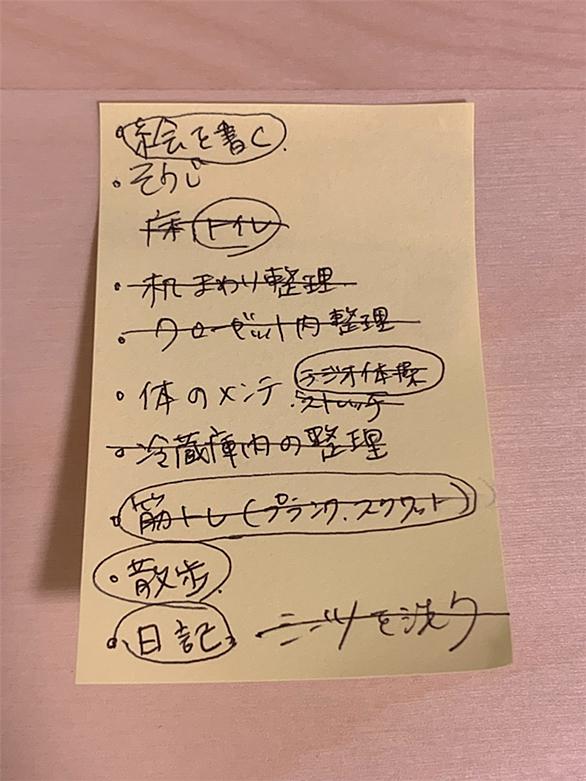 ・絵を書く.
・そうじ
床 トイレ
・机まわり整理
・クローゼット内整理
・体のメンテ ラジオ体操
・ストレッチ
・冷蔵庫内の整理
・筋トレ(プランク、スクワット)
・散歩.
・日記 シーツを洗う